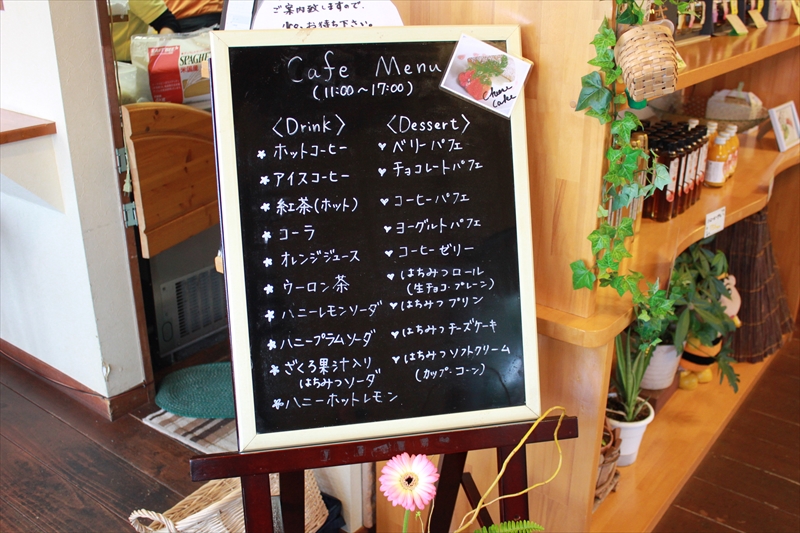 ご案内致しますので、
お待ち下さい。
SPAGHE
Cafe Menu
(11:00～17:00)
Cheese
Cake
〈Drink〉
ホットコーヒー
アイスコーヒー
紅茶(ホット)
コーラ
オレンジジュース
ウーロン茶
ハニーレモンソーダ
ハニープラムソーダ
ざくろ果汁入り
はちみつソーダ
ハニーホットレモン
〈Dessert〉
ベリーパフェ
チョコレートパフェ
コーヒーパフェ
ヨーグルトパフェ
コーヒーゼリー
はちみつロール
(生チョコ・プレーン)
はちみつプリン
はちみつチーズケーキ
はちみつソフトクリーム
(カップ・コーン)